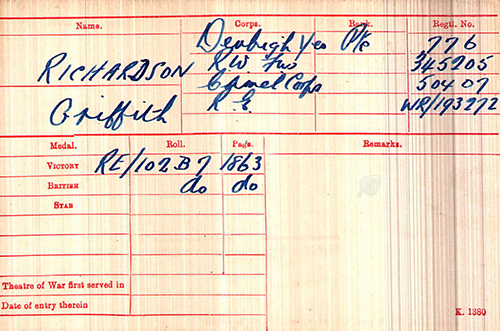 Name. Corps. Rank. Regtl. No.
Denbigh Yeo Pte 776
RICHARDSON R W Fus 345205
Camel Corps 50407
Griffith R E. WR/193272
Medal. Roll. Page. Remarks.
VICTORY RE/102 B 7 1863
BRITISH do do
STAR
Theatre of War first served in
Date of entry therein
K. 1380